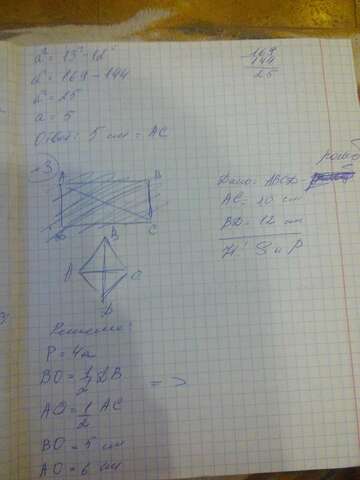 a² = 13² - 12²
a² = 169 - 144
a² = 25
a = 5
Ответ: 5 см = AC
169
144
25
3
A B
C
ромб
Дано: ABCD -
AC = 10 см
BD = 12 см
Н: S и P
B
A C
D
Решение:
P = 4a
BO = 1/2 DB
=>
AO = 1/2 AC
BO = 5 см
AO = 6 см